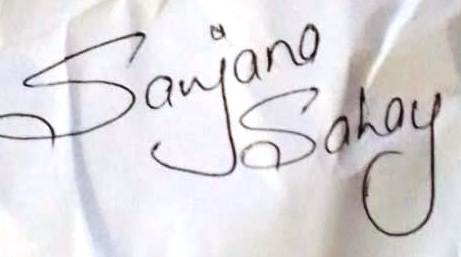 Sanjana
Sahay